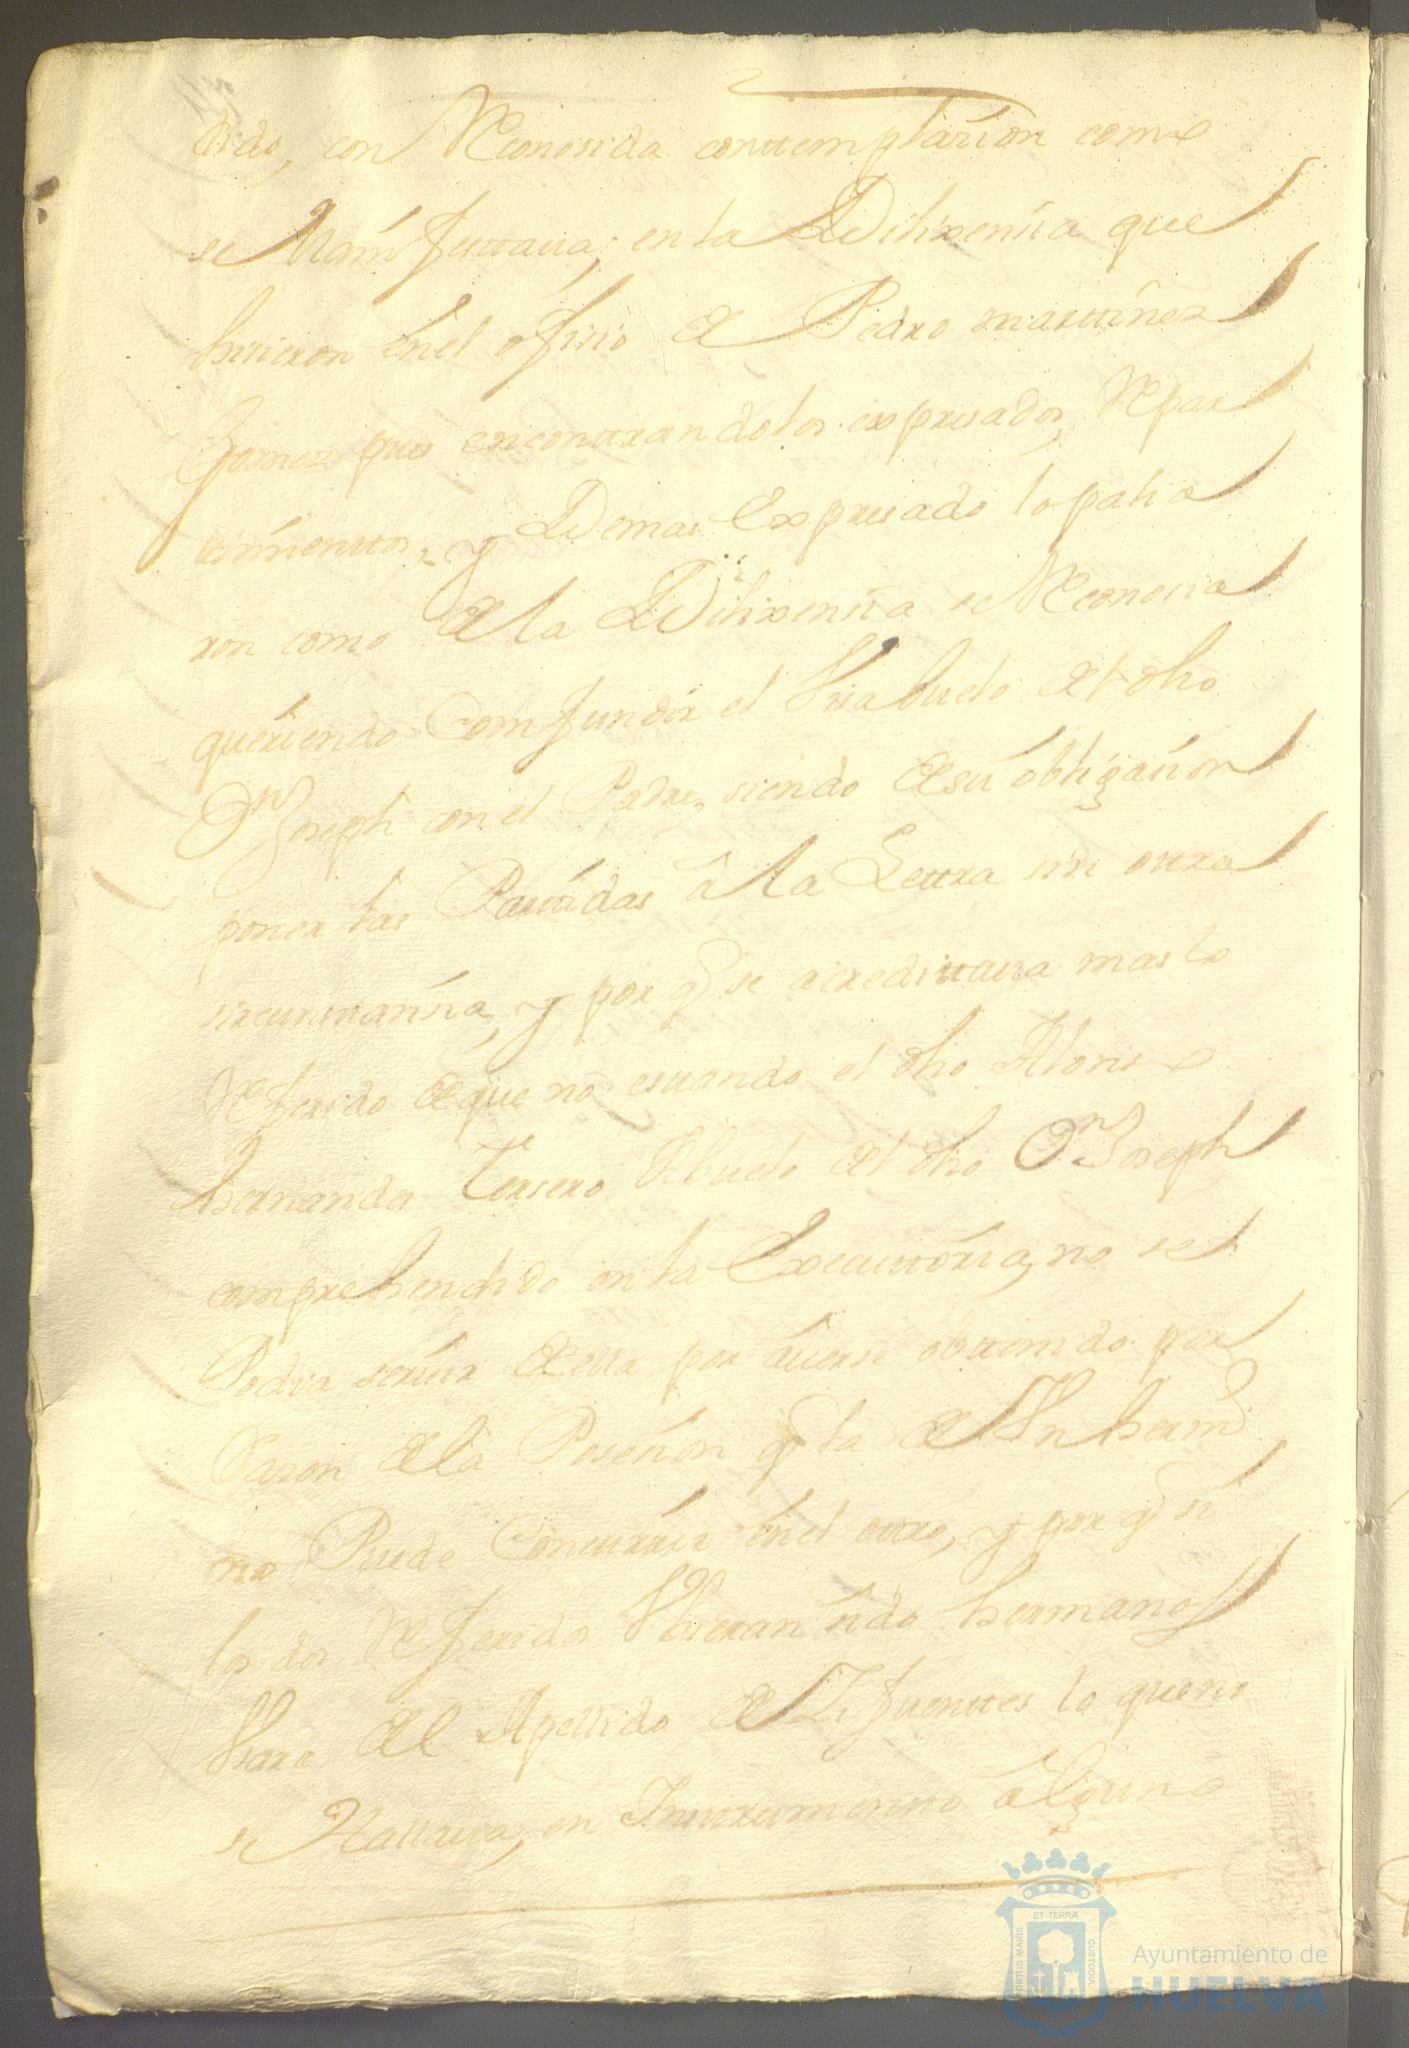 dido, con Reconosida conttemplasion como
se Manifsttaua; en la Dilixensia que
hisieron en el ofisio de Pedro martinez
Gomez pues encontrandolos expresados Repar
timientos, y Demas Expresado lo palia
ron como de la Dilixensia se Reconosia
queriendo Comfundir el Visabuelo del dho
Dn Joseph con el Padre, siendo de su obligasion
poner las Parttidas â la Lettra sin ottra
sircunstansia, y por q se acredittaua mas lo
Referido de que no estando el dho Alonso
hernandes Tersero Abuelo del dho Dn Joseph
comprehendido en la Executtoria, no se
Podia seruir de ella por auerse obtenido por
Rason de la Posesion q la de Vn herm
no Puede Concurrir en el ottro, y por q si
los dos Referidos Vbieran sido hermanos
Vsara del Apellido de Zifuenttes lo que no
se Hallaua, en Instrumento âlguno
ET TERRÆ
CUSTODIA
PORTUS MARIS
Ayuntamiento de
HUELVA